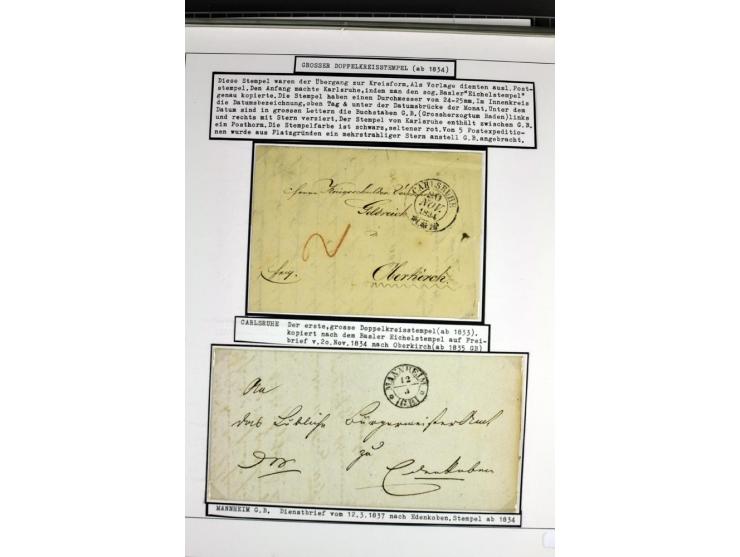 GROSSER DOPPELKREISSTEMPEL (ab 1834)
Diese Stempel waren der Übergang zur Kreisform.Als Vorlage dienten ausl.Post-
stempel.Den Anfang machte Karlsruhe,indem man den sog.Basler"Eichelstempel"
genau kopierte.Die Stempel haben einen Durchmesser vom 24-25mm.Im Innenkreis
die Datumsbezeichnung,oben Tag & unter der Datumsbrücke der Monat.Unter dem
Datum sind in grossen Lettern die Buchstaben G.B.(Grossherzogtum Baden)links
und rechts mit Stern verziert.Der Stempel von Karlsruhe enthält zwischen G.B.
ein Posthorn.Die Stempelfarbe ist schwarz,seltener rot.Von 5 Postexpeditio-
nen wurde aus Platzgründen ein mehrstrahliger Stern anstell G.B.angebracht.
CARLSRUHE
20
NOV.
1834
Oberkirch
CARLSRUHE Der erste,grosse Doppelkreisstempel(ab 1833),
kopiert nach dem Basler Eichelstempel auf Frei-
brief v.2o.Nov.1834 nach Oberkirch(ab 1835 GB)
MANNHEIM
12
3
An
das Löbliche Bürgermeister Amt
zu
Edenkoben
MANNHEIM G.B. Dienstbrief vom 12.3.1837 nach Edenkoben,Stempel ab 1834